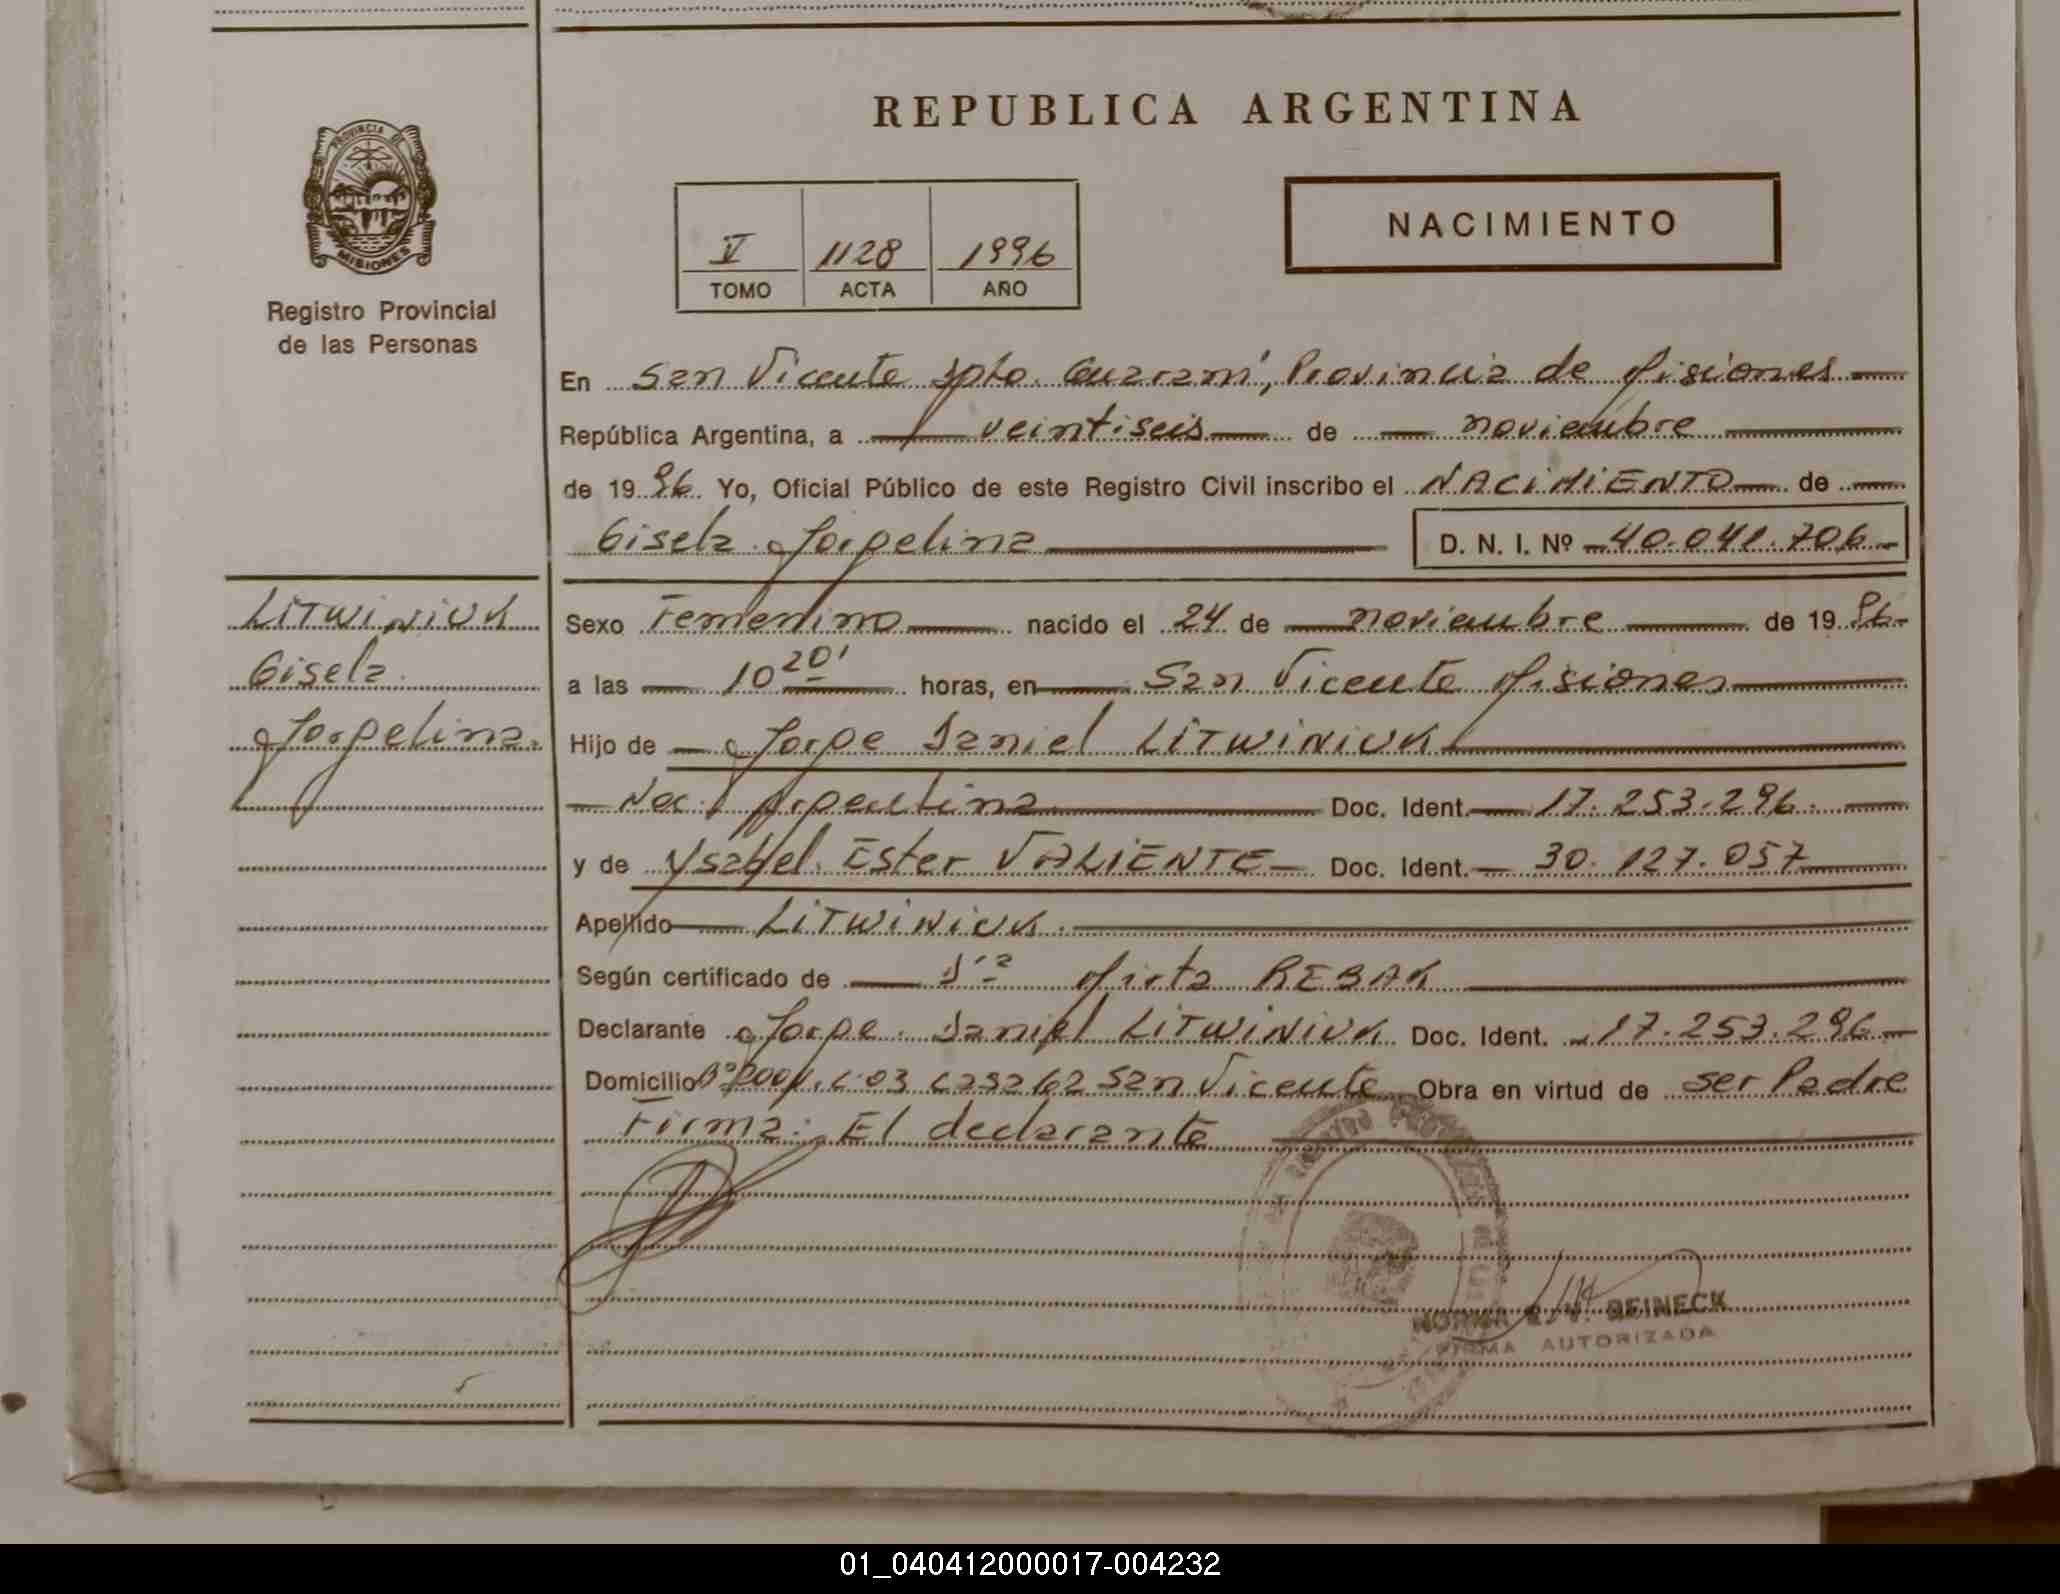 REPUBLICA ARGENTINA
PROVINCIA DE
MISIONES
Registro Provincial
de las Personas
V 1128 1996
TOMO ACTA AÑO
NACIMIENTO
En San Vicente Dpto. Guaraní, Provincia de Misiones
República Argentina, a veintiseis de noviembre
de 1996 Yo, Oficial Público de este Registro Civil inscribo el NACIMIENTO de
Gisela Jorgelina D. N. I. Nº 40.041.706
LITWINIUK
Gisela
Jorgelina.
Sexo Femenino nacido el 24 de noviembre de 1996
a las 10 20' horas, en San Vicente Misiones
Hijo de Jorge Daniel LITWINIUK
Nac. Argentina Doc. Ident. 17.253.296.
y de Ysabel Ester VALIENTE Doc. Ident. 30.127.057
Apellido LITWINIUK.
Según certificado de Dra Mirta REBAK
Declarante Jorge Daniel LITWINIUK Doc. Ident. 17.253.296
Domicilio Bº casa 62 San Vicente Obra en virtud de ser Padre
Firma: El declarante
NORMA E. V. REINECK
FIRMA AUTORIZADA
01_040412000017-004232